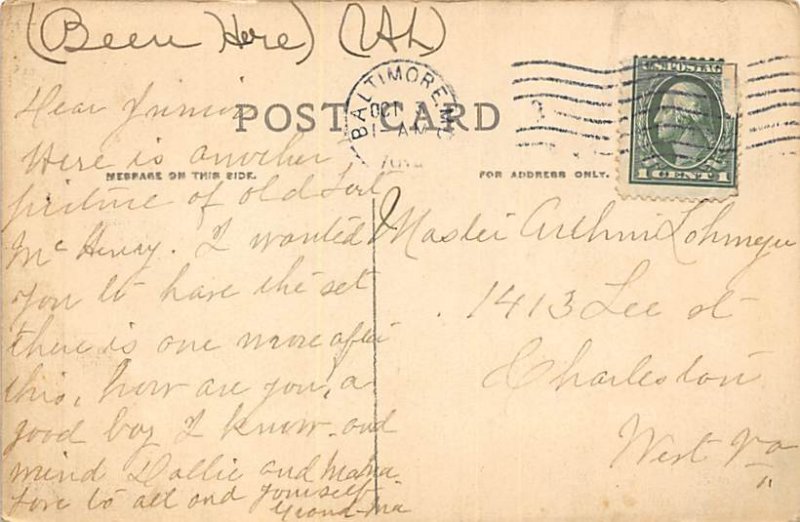 (Been Here) (AL)
BALTIMORE, M
OCT 3
1- AM
U.S. POSTAG
1 CENT 1
POST CARD
MESSAGE ON THIS SIDE.
FOR ADDRESS ONLY.
Dear Junior
Here is another
picture of old Fort
Mc Henry. I wanted
you to have the set
there is one more after
this, how are you, a
good boy I know. and
mind Dollie and Mama.
love to all and yourself
Grand-Ma
Master Arthur Lohmeyer
1413 Lee st
Charleston
West Va